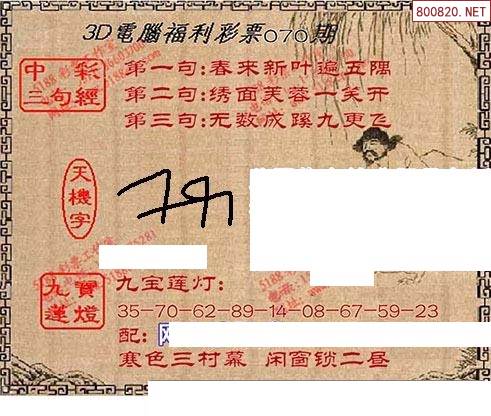 800820.NET
3D電腦福利彩票070期
中彩
三句經
第一句:春来新叶遍五隅
第二句:绣面芙蓉一笑开
第三句:无数成蹊九更飞
天機字
九寶
蓮燈
九宝莲灯:
35-70-62-89-14-08-67-59-23
配:
寒色三村幕 闲窗锁二昼